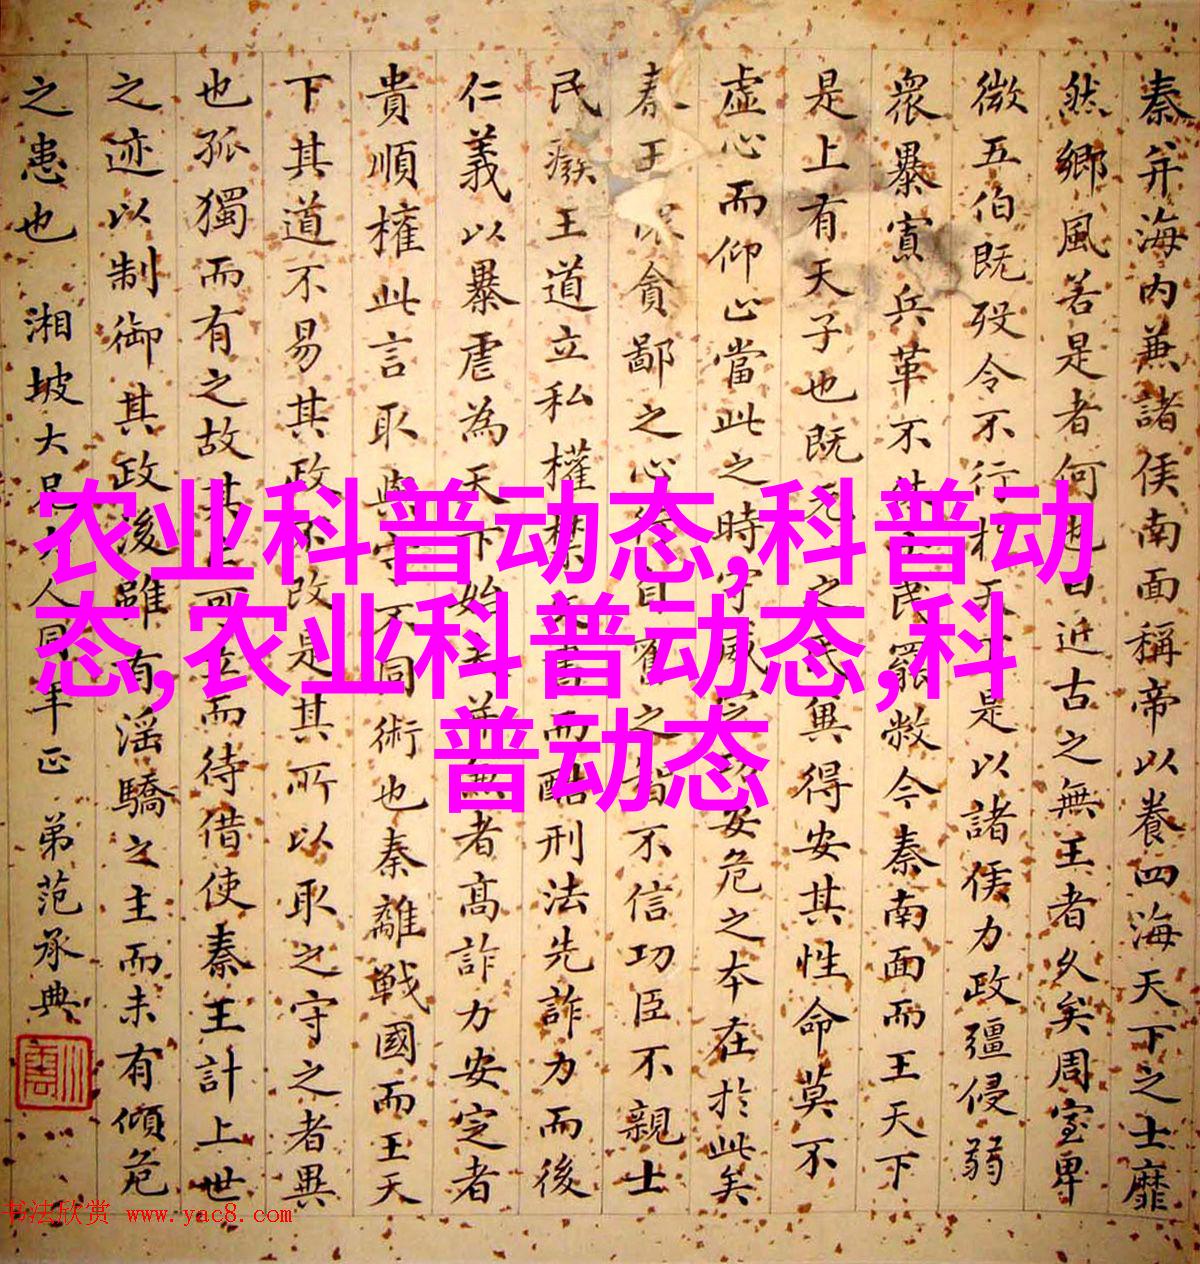 秦并海内兼諸侯南面稱帝以養四海天下之士靡
然鄉風若是者何也曰近古之無王者久矣周室卑
微五伯既歿令不行於天下是以諸侯力政彊侵弱
衆暴寡兵革不休民罷敝今秦南面而王天下
是上有天子也既元之民異得安其性命莫不
虛心而仰上當此之時守威定功安危之本在於此矣
秦王貪鄙之心行自奮之智不信功臣不親士
民廢王道立私權禁文書而酷刑法先詐力而後
仁義以暴虐為天下始并兼者高詐力安定者
貴順權此言取與守不同術也秦離戰國而王天
下其道不易其政不改是其所以取之守之者異
也孤獨而有之故其亡可立而待借使秦王計上世
之迹以制御其政後雖有淫驕之主而未有傾危
之患也 湘坡大兄大人同年正 弟范承典
农业科普动态,科普动
态,农业科普动态,科
普动态
书法欣赏 www.yac8.com